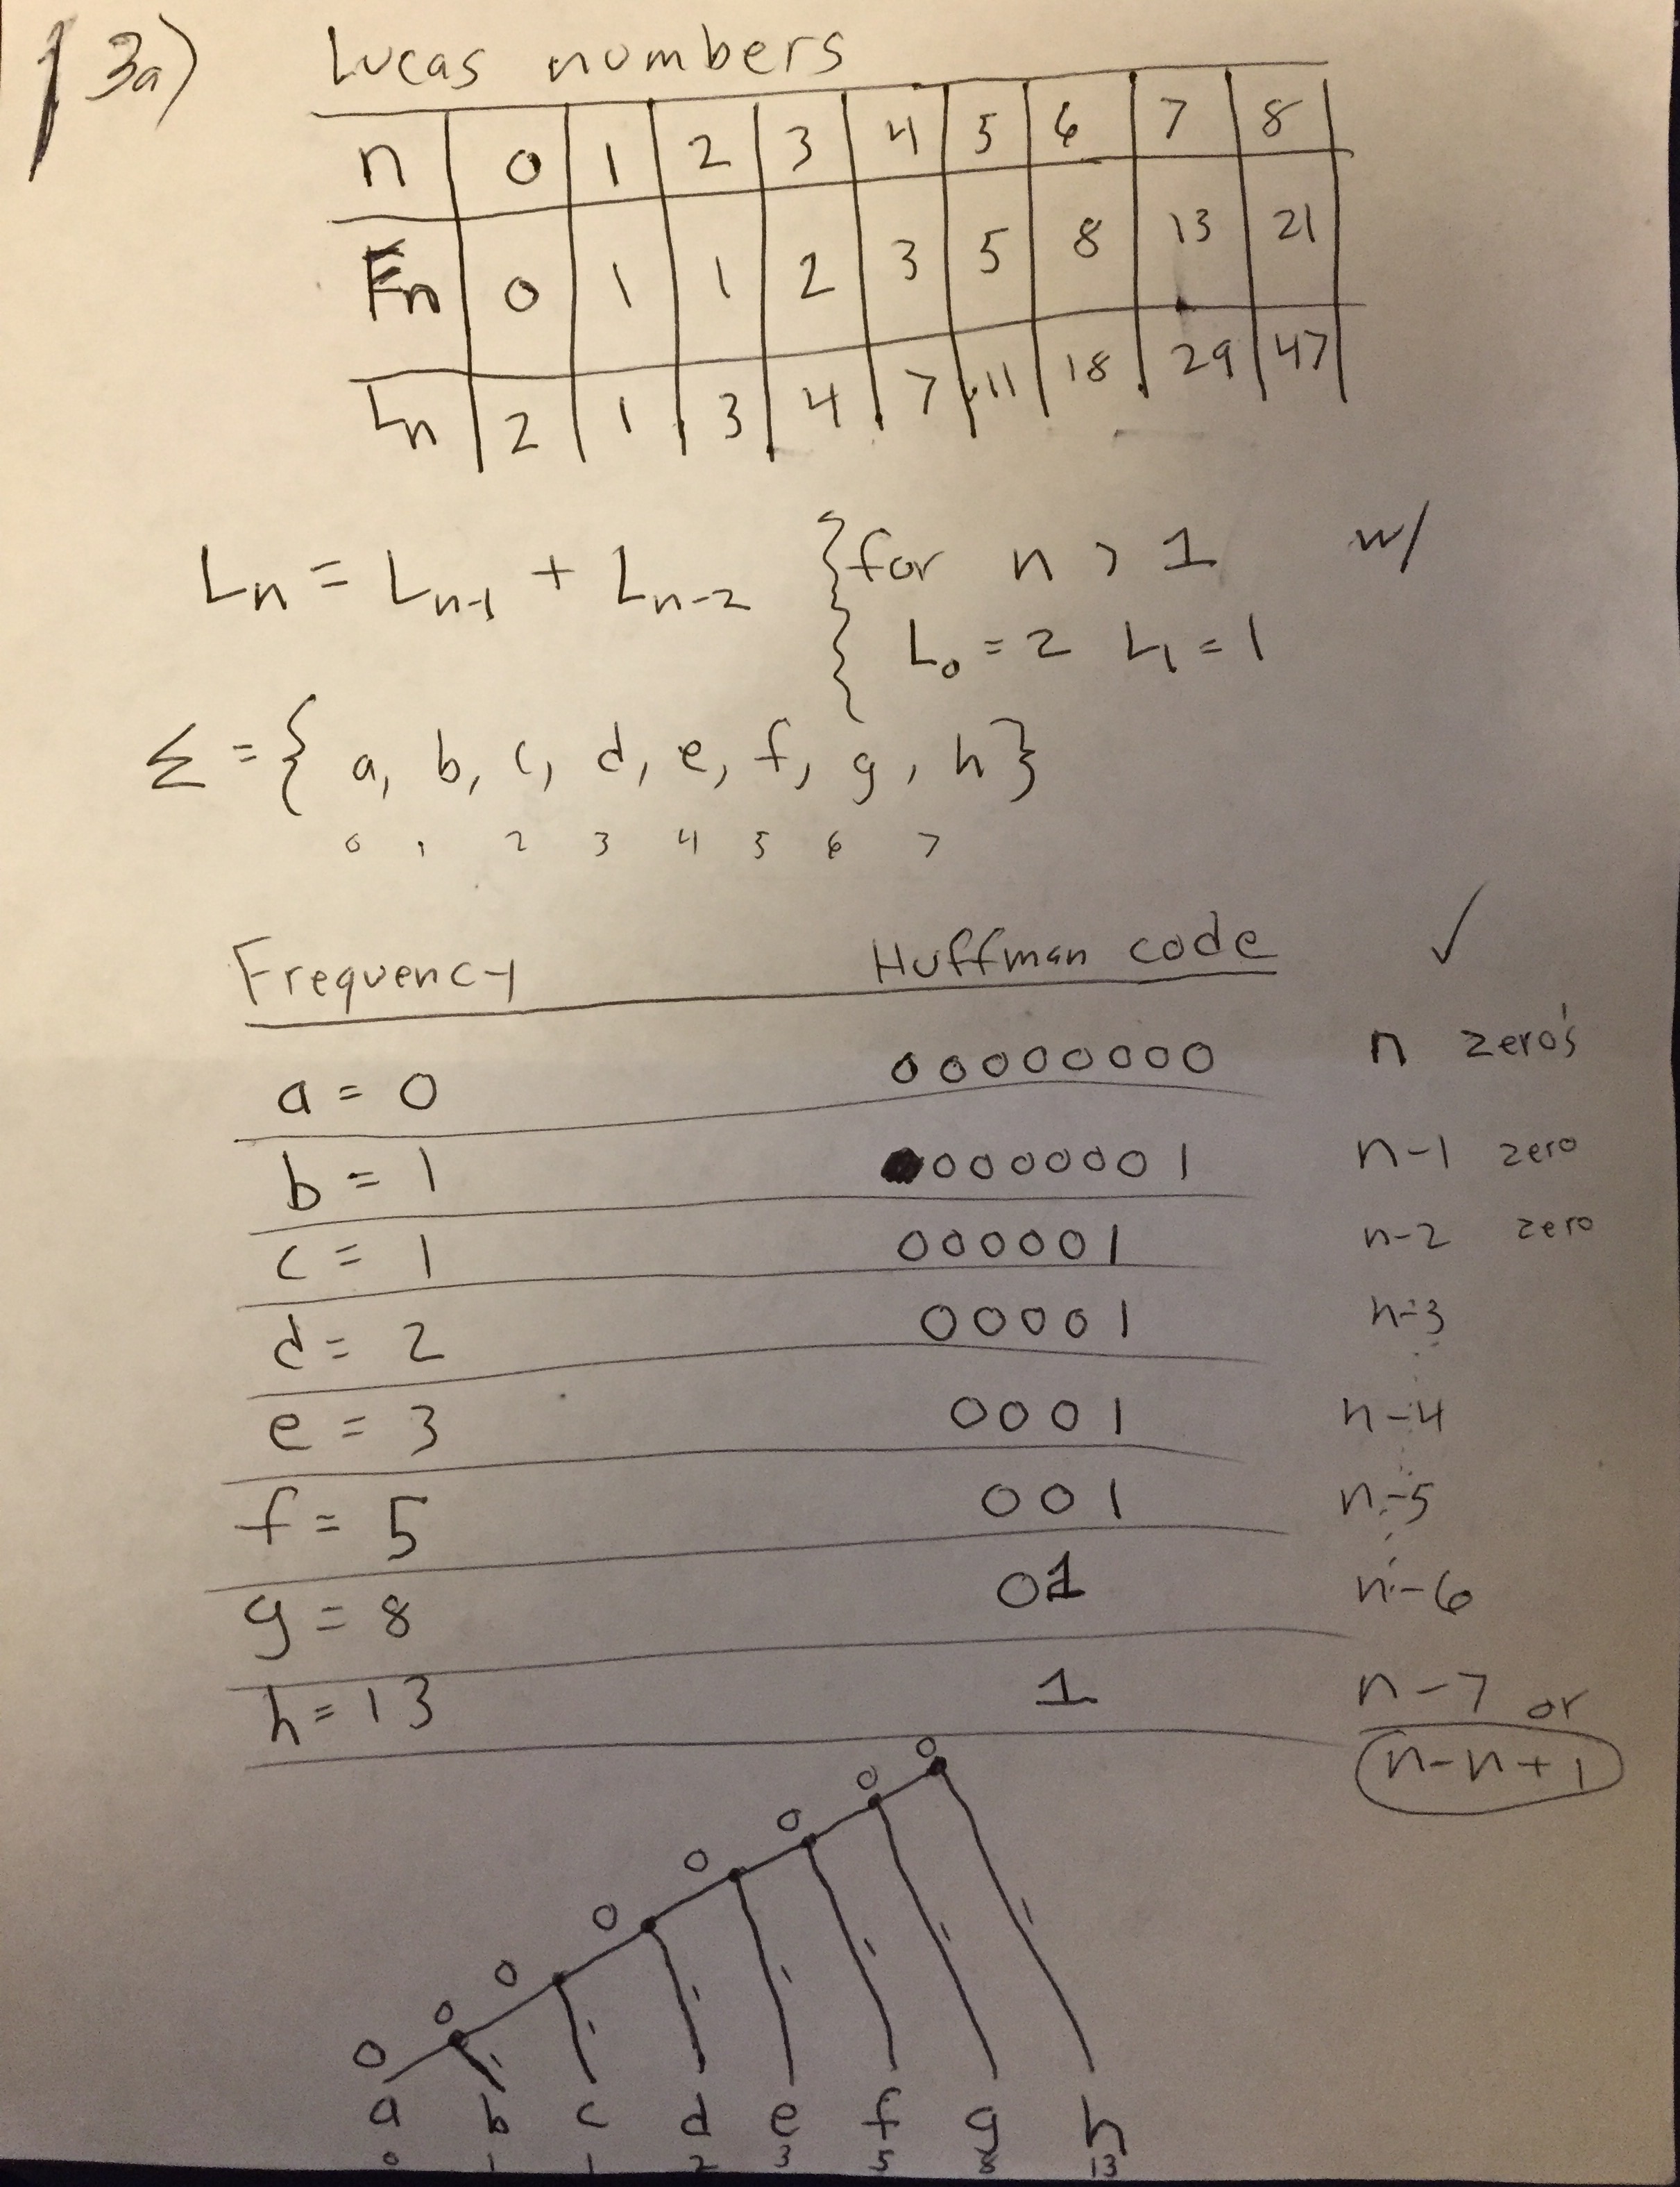 13a) Lucas numbers
n 0 1 2 3 4 5 6 7 8
Fn 0 1 1 2 3 5 8 13 21
Ln 2 1 3 4 7 11 18 29 47
Ln = Ln-1 + Ln-2 } for n > 1 w/
} L0 = 2 L1 = 1
Σ = { a, b, c, d, e, f, g, h }
0 1 2 3 4 5 6 7
Frequency Huffman code ✓
a = 0 0000000 n zero's
b = 1 0000001 n-1 zero
c = 1 000001 n-2 zero
d = 2 00001 n-3
e = 3 0001 n-4
f = 5 001 n-5
g = 8 01 n-6
h = 13 1 n-7 or
n-n+1
0
0
0
0
0
0
0
0
a b c d e f g h
0 1 1 2 3 5 8 13